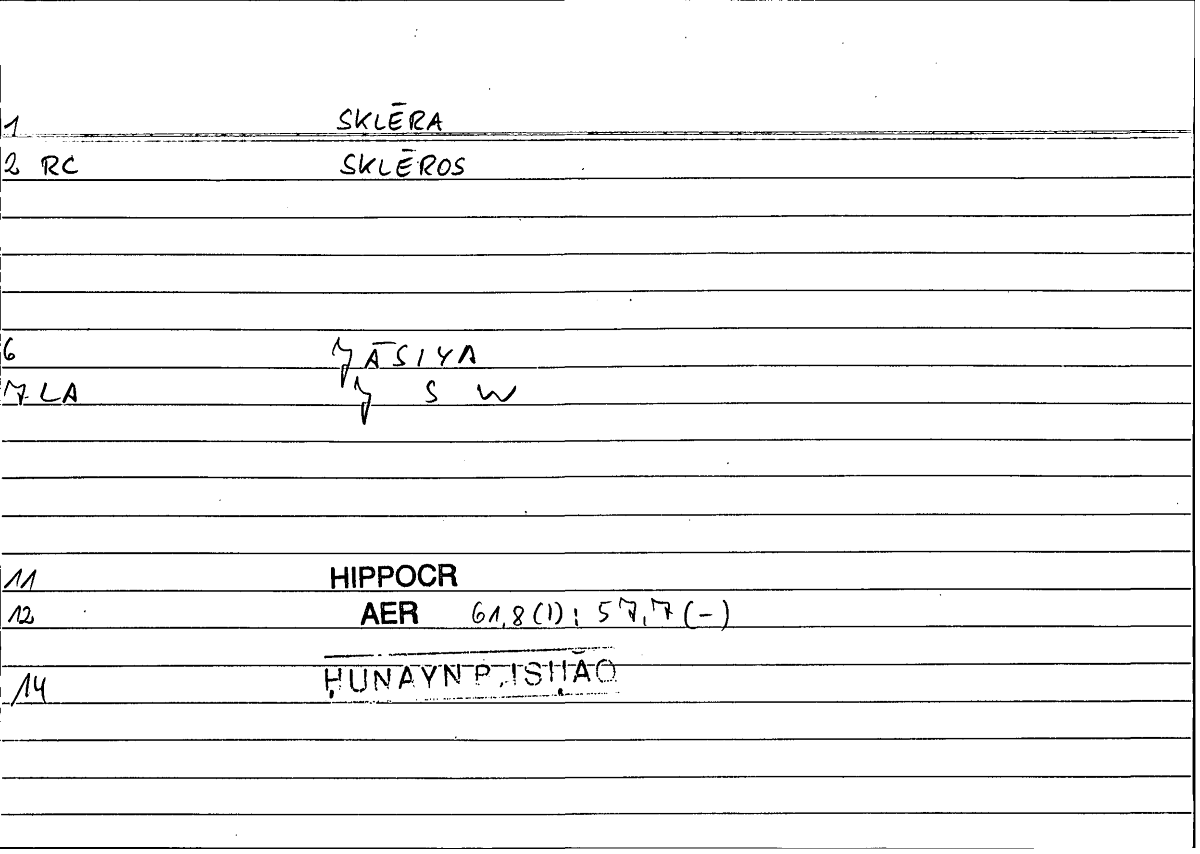 1 SKLĒRA
2 RC SKLĒROS
6 JĀSIYA
7 LA J S W
11 HIPPOCR
12 AER 61,8(1); 57,7(-)
14 ḤUNAYN B. ISḤĀQ